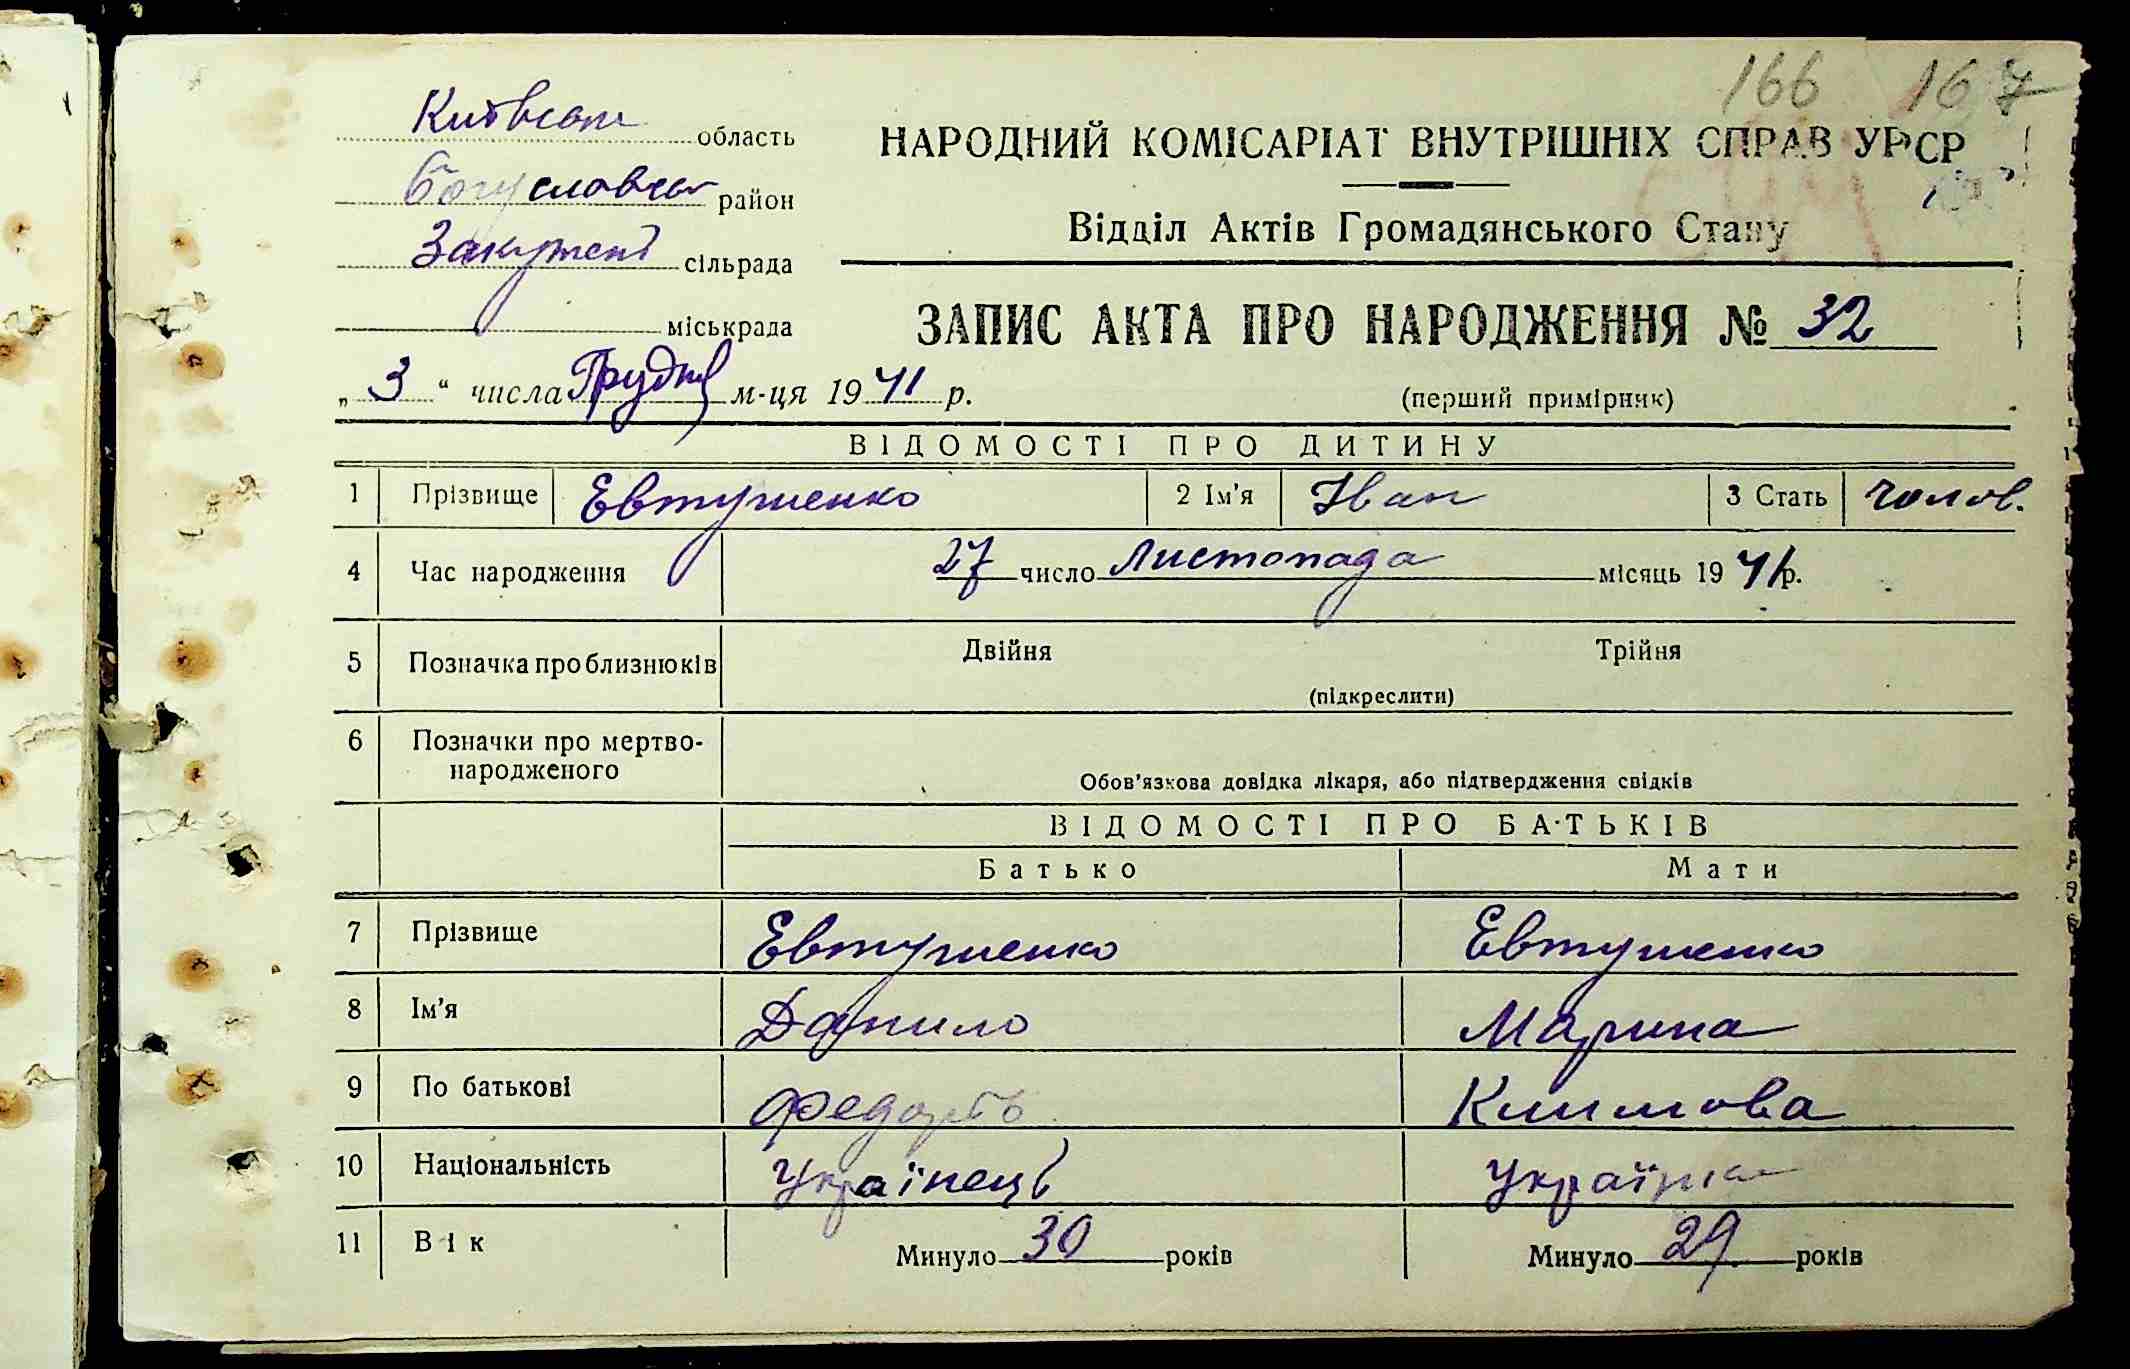 166 167
Київська область
Богуславськ район
Закутені сільрада
міськрада
НАРОДНИЙ КОМІСАРІАТ ВНУТРІШНІХ СПРАВ УРСР
Відділ Актів Громадянського Стану
ЗАПИС АКТА ПРО НАРОДЖЕННЯ № 32
„ 3 “ числа Грудня м-ця 1941 р.
(перший примірник)
ВІДОМОСТІ ПРО ДИТИНУ
1 Прізвище Евтушенко 2 Ім’я Іван 3 Стать чолов.
4 Час народження 27 число Листопада місяць 1941 р.
5 Позначка про близнюків Двійня Трійня
(підкреслити)
6 Позначки про мертво-
народженого
Обов’язкова довідка лікаря, або підтвердження свідків
ВІДОМОСТІ ПРО БАТЬКІВ
Батько Мати
7 Прізвище Евтушенко Евтушенко
8 Ім’я Данило Марина
9 По батькові Климова
10 Національність Українець Українка
11 Вік Минуло 30 років Минуло 29 років